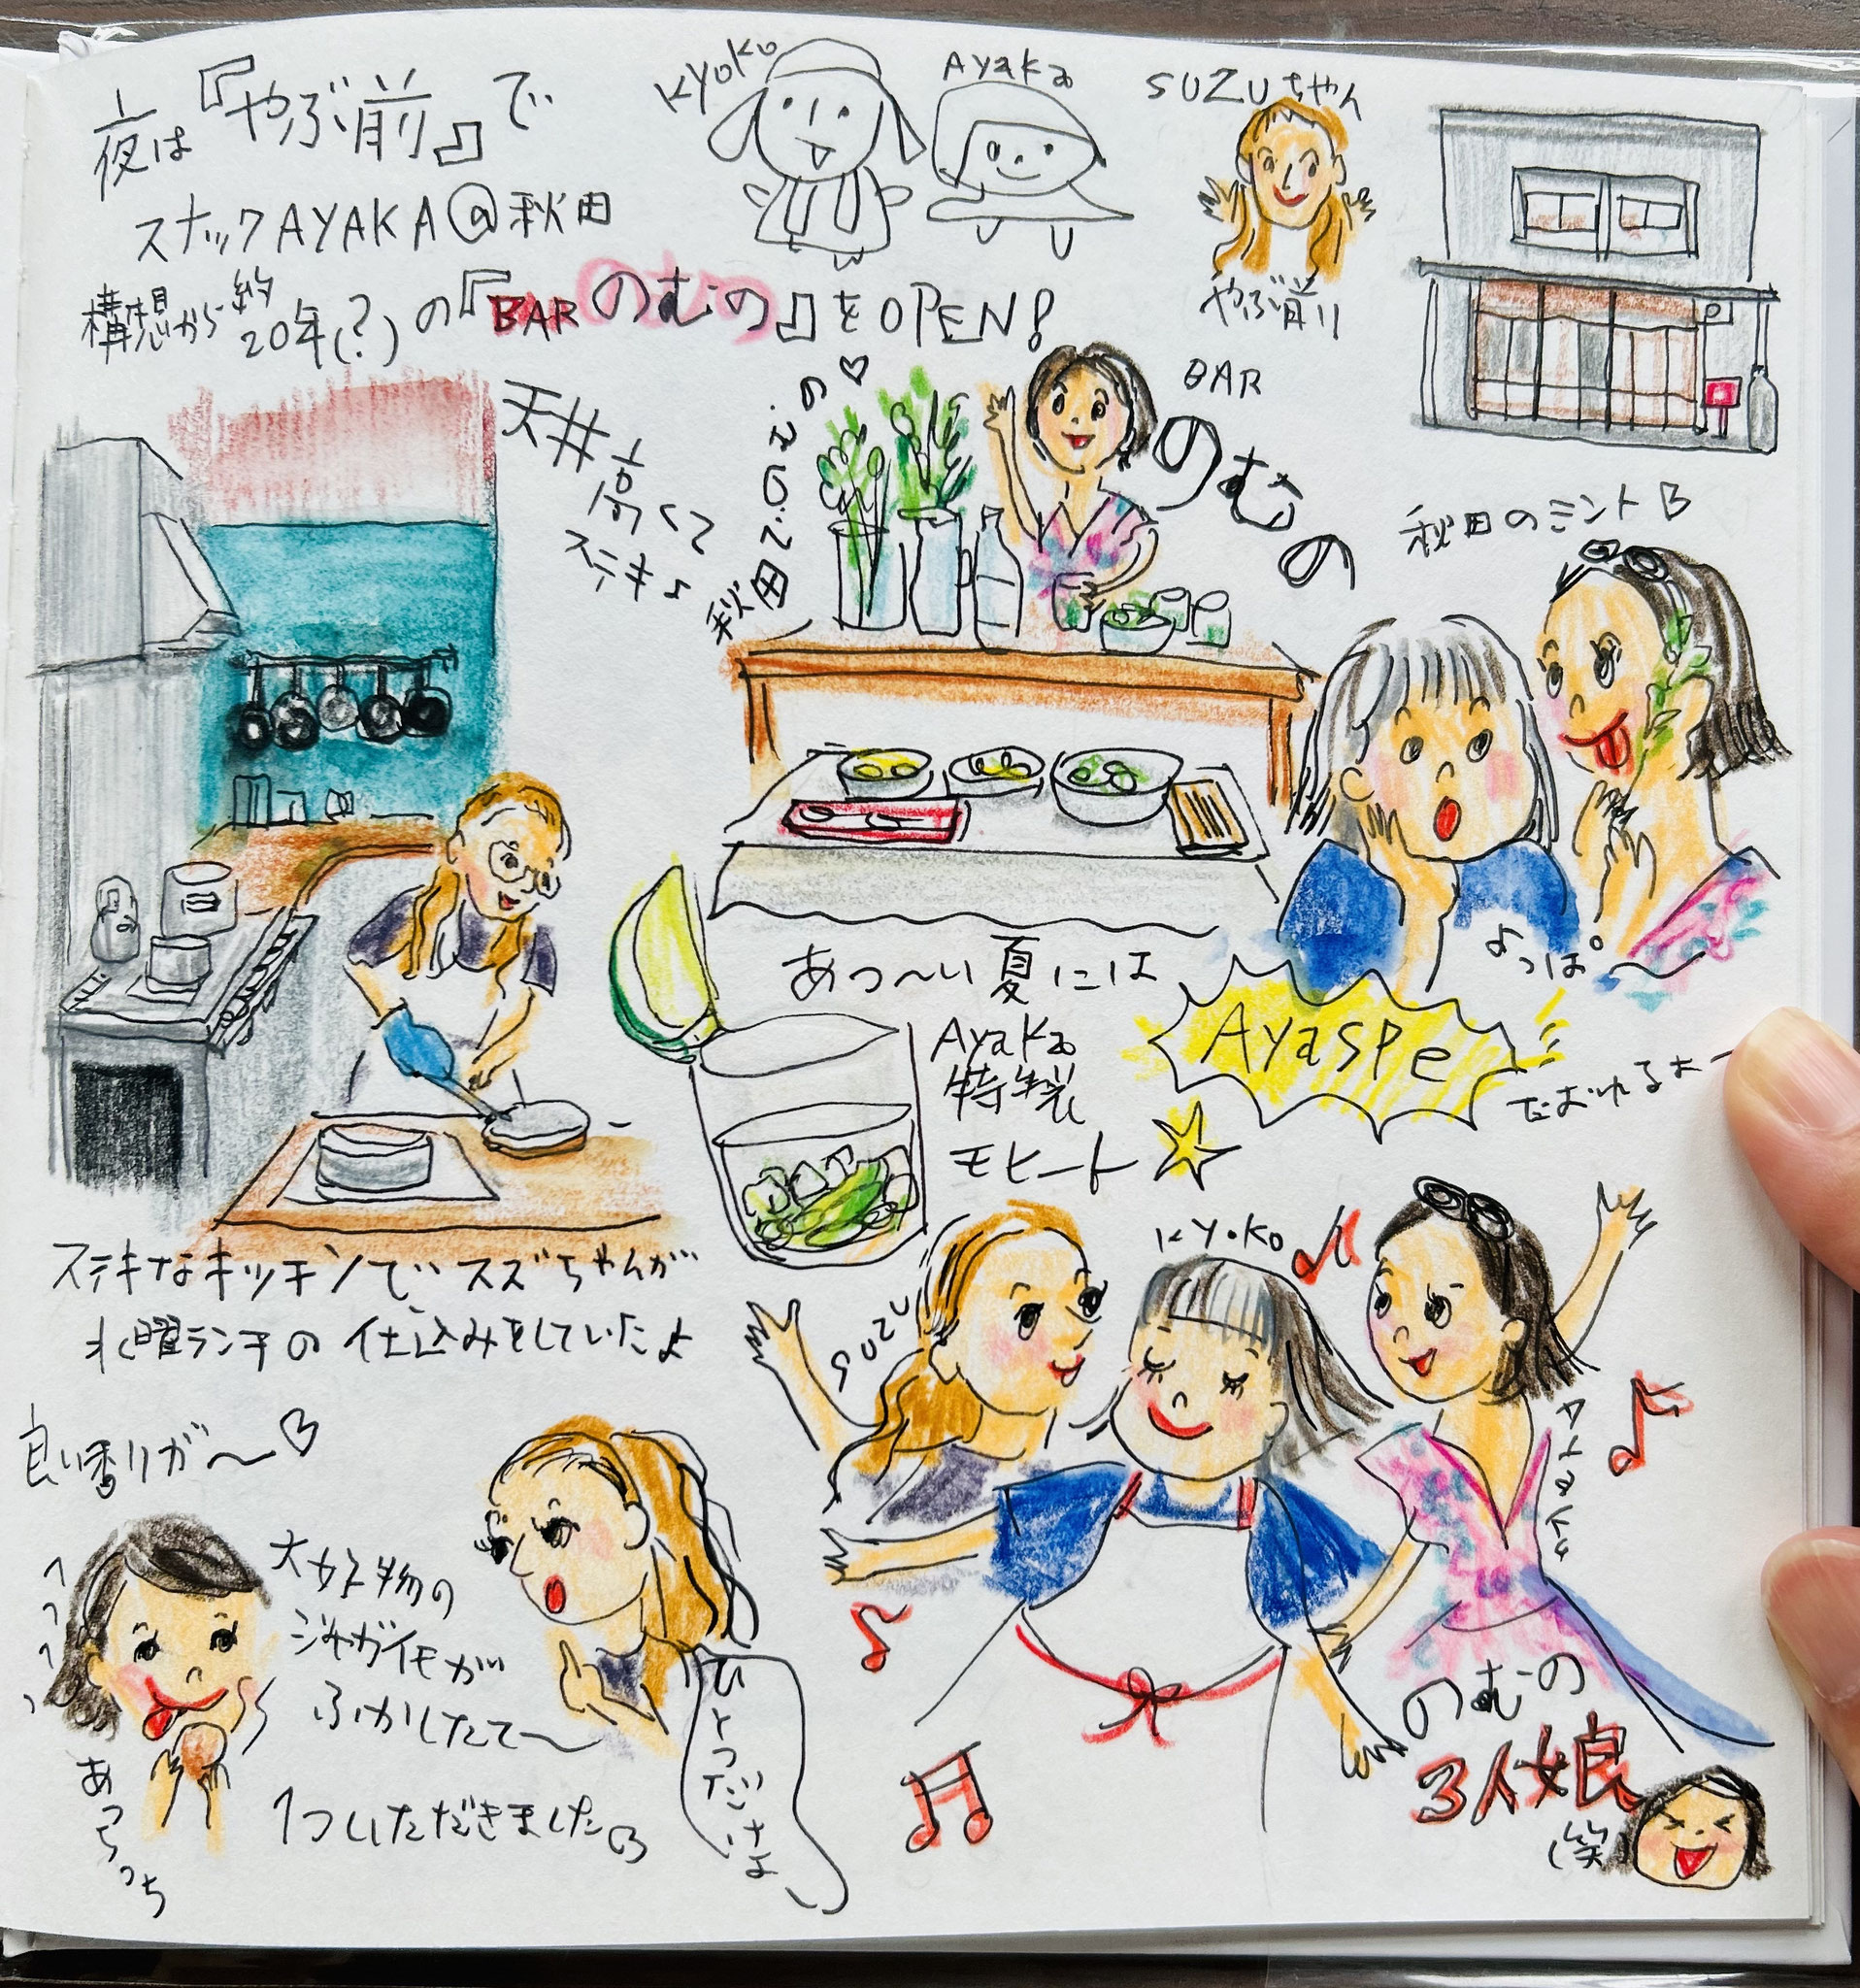 夜は『やぶ前』で
スナックAYAKA@秋田
構想から約20年(?)の『BARのむの』をOPEN!
Kyoko
Ayaka
SUZUちゃん
やぶ前
天井高くて
ステキ♪
秋田でのむの♡
BAR
のむの
秋田のミント♡
ステキなキッチンでスズちゃんが
水曜ランチの仕込みをしていたよ
あつ〜い夏には
Ayaka
特製
モヒート
よっぱ〜
Ayaspe
良い香りが〜♡
大好物の
ジャガイモが
ふかしたて〜
1ついただきました♡
あっちっち
ひとつだけよ
SUZU
KYOKO
のむの
3人娘
(笑)